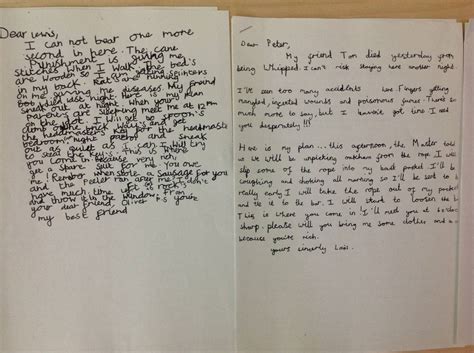 Dear
I can not bear one more
second in here. The cane
Punishment is giving me
stitches when I walk. The bed's
are wooden so I am getting splinters
in my back. Rats are running
on me giving me diseases. My friend
died last night. Here is my plan
sneak out at night. When your
parents are sleeping meet me at 12PM
on the dot. I will get
climb the rock wall and get
the headmasters key for the
bedroom, night and sneak
out as quiet as I can. I will try
to seed a key. This is where
you come in because very
get a spare suit for me. You owe
me! Rember when I stole a sausage for you
and the Peeler ran after me. I don't
have much time left so
and throw it the window. From
your dear friend Oliver. P.s you're
my best friend
Dear Peter,
My friend Tom died yesterday from
being whipped. I can't risk staying here another night.
I've seen too many accidents here. Fingers getting
mangled, infected wounds and poisonous juices. There's so
much more to say, but I haven't got time I need
you desperately!!!
Here is my plan... this afternoon, the Master told
us we will be unpicking oakham from the rope I will
slip some of the rope into my back pocket. I'll be
coughing and choking all morning so I'll be sent to b
really early. I will take the rope out of my pocket
and tie it to the bar. I will start to loosen the b
This is where you come in! I'll need you at
sharp. please will you bring me some clothes and a
because you're rich.
yours sincerly